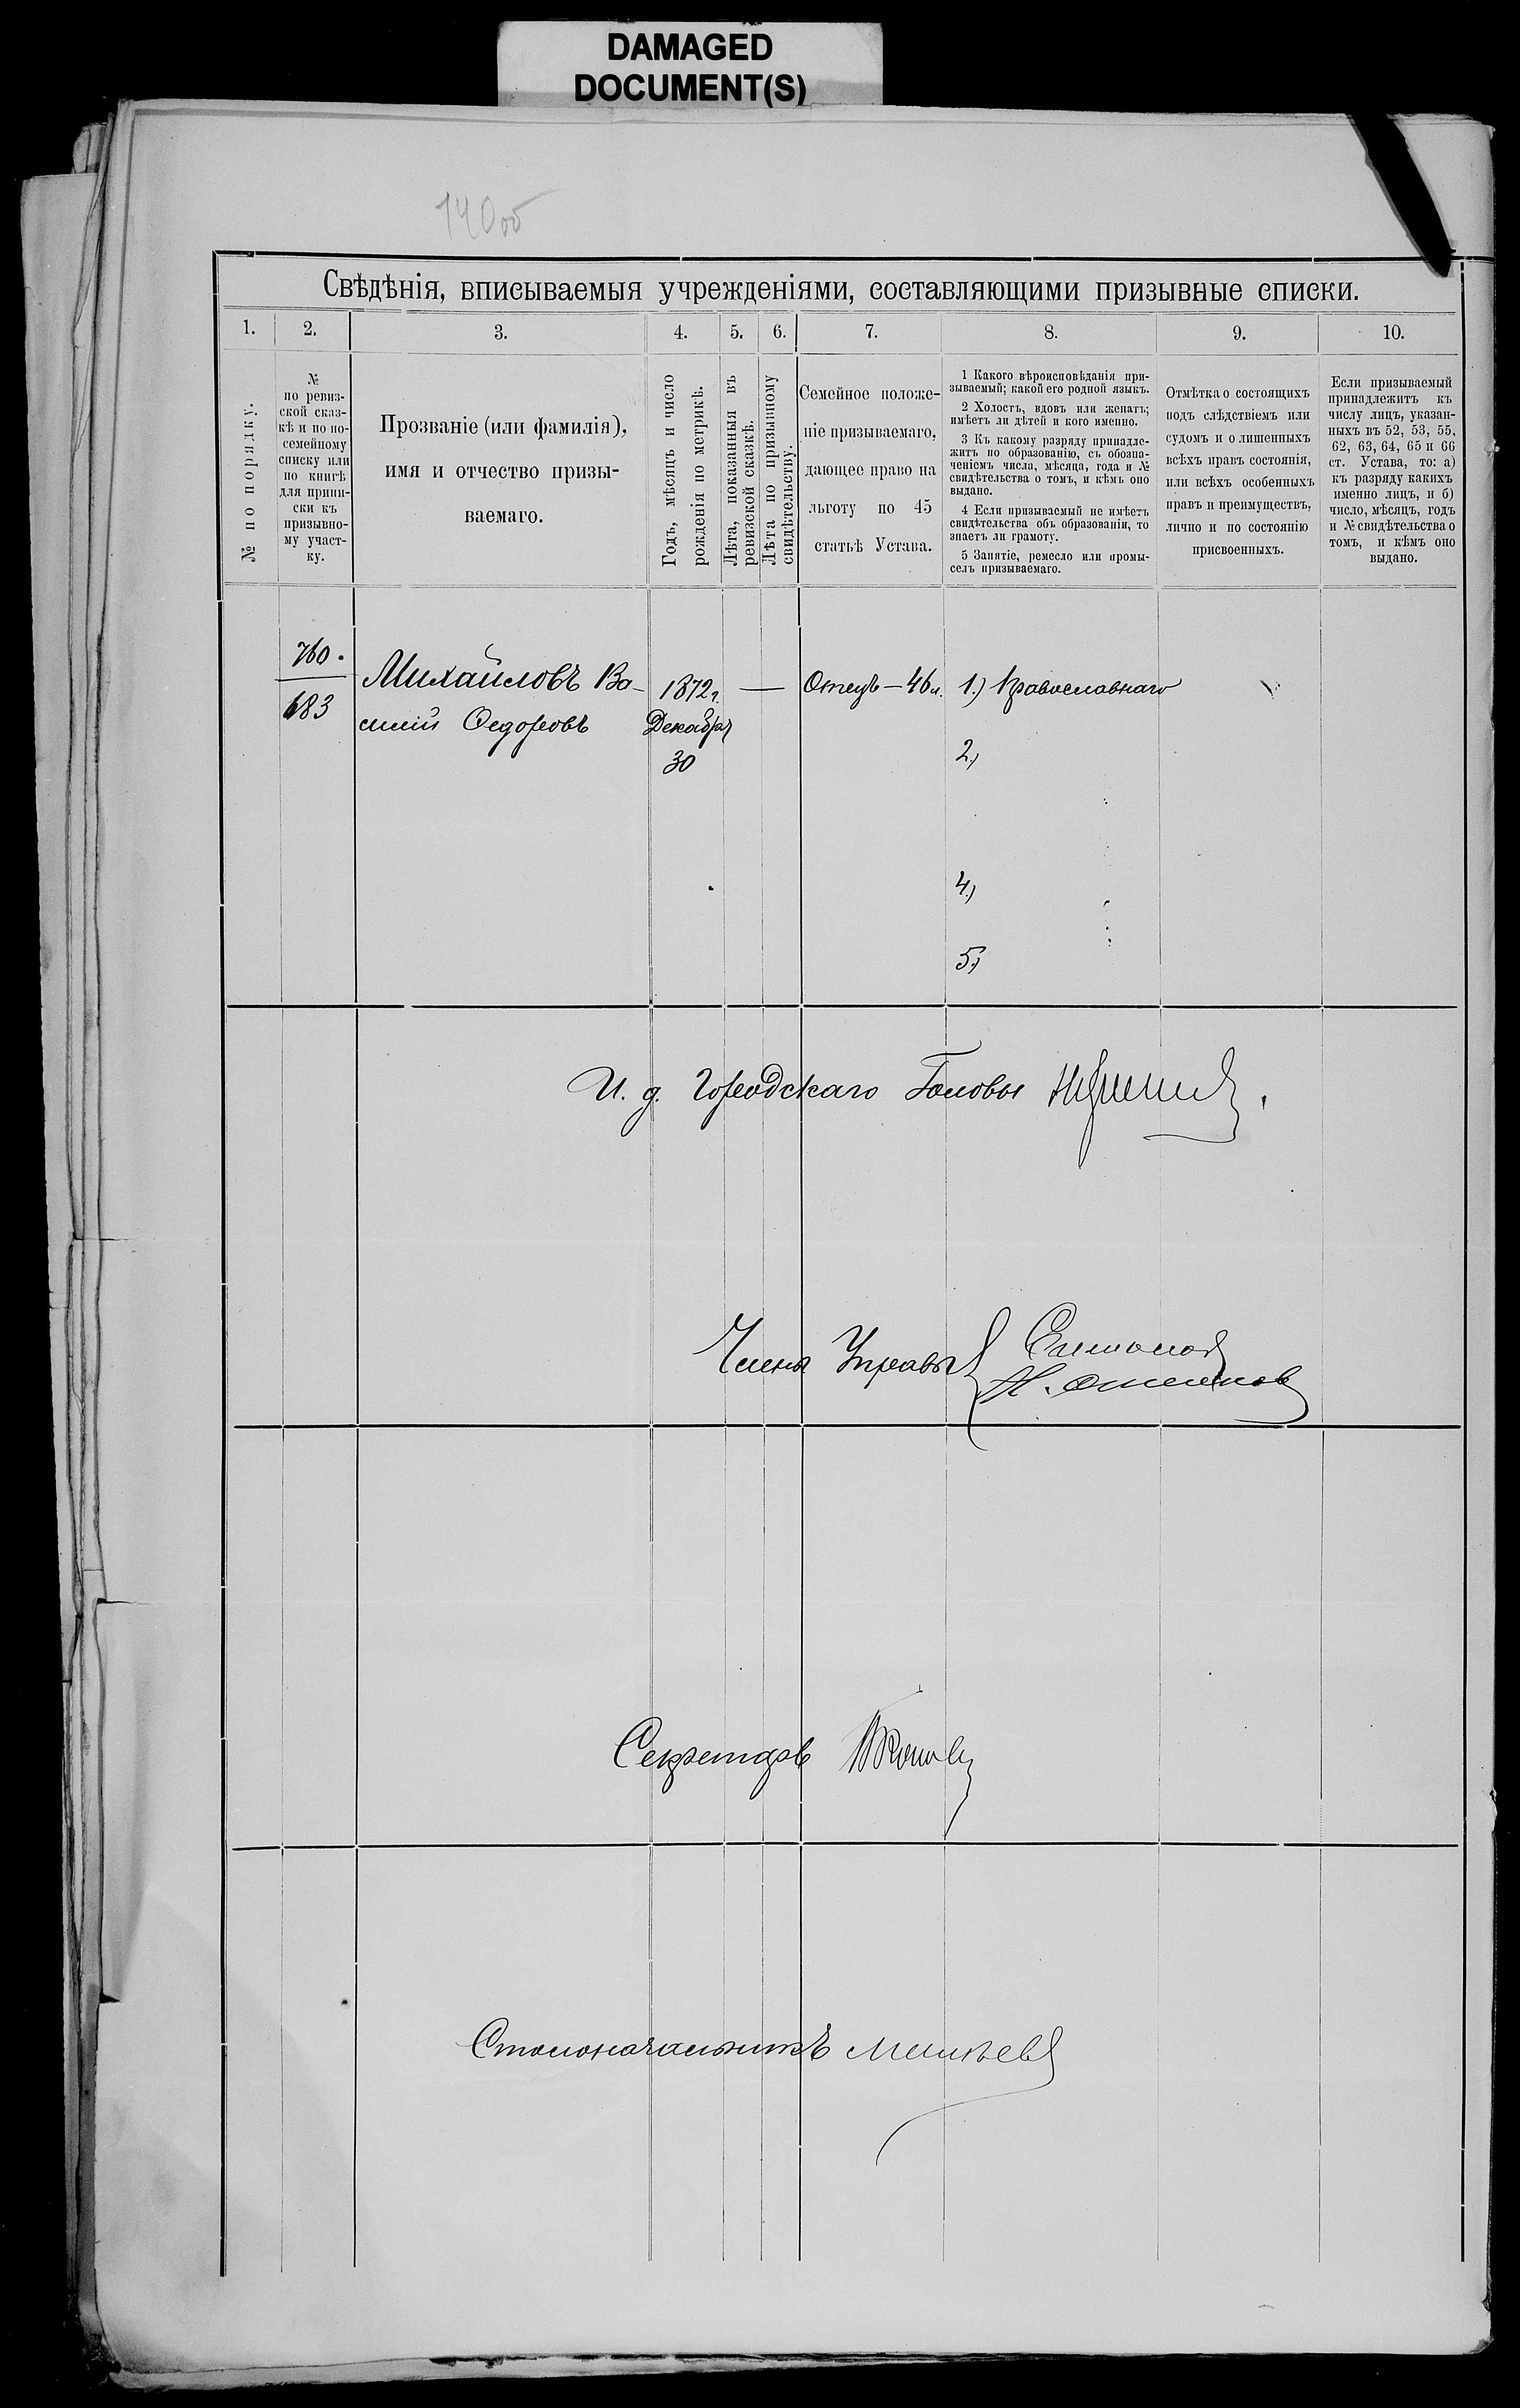 DAMAGED
DOCUMENT(S)
140об
Свѣдѣнія, вписываемыя учрежденіями, составляющими призывные списки.
1. 2. 3. 4. 5. 6. 7. 8. 9. 10.
№ по порядку.
№
по ревиз-
ской сказ-
кѣ и по по-
семейному
списку или
по книгѣ
для припи-
ски къ
призывно-
му участ-
ку.
Прозваніе (или фамилія),
имя и отчество призы-
ваемаго.
Годъ, мѣсяцъ и число
рожденія по метрикѣ.
Лѣта, показанныя въ
ревизской сказкѣ.
Лѣта по призывному
свидѣтельству.
Семейное положе-
ніе призываемаго,
дающее право на
льготу по 45
статьѣ Устава.
1 Какого вѣроисповѣданія при-
зываемый; какой его родной языкъ.
2 Холостъ, вдовъ или женатъ;
имѣетъ ли дѣтей и кого именно.
3 Къ какому разряду принадле-
житъ по образованію, съ обозна-
ченіемъ числа, мѣсяца, года и №
свидѣтельства о томъ, и кѣмъ оно
выдано.
4 Если призываемый не имѣетъ
свидѣтельства объ образованіи, то
знаетъ ли грамоту.
5 Занятіе, ремесло или промы-
селъ призываемаго.
Отмѣтка о состоящихъ
подъ слѣдствіемъ или
судомъ и о лишенныхъ
всѣхъ правъ состоянія,
или всѣхъ особенныхъ
правъ и преимуществъ,
лично и по состоянію
присвоенныхъ.
Если призываемый
принадлежитъ къ
числу лицъ, указан-
ныхъ въ 52, 53, 55,
62, 63, 64, 65 и 66
ст. Устава, то: а)
къ разряду какихъ
именно лицъ, и б)
число, мѣсяцъ, годъ
и № свидѣтельства о
томъ, и кѣмъ оно
выдано.
760.
683
Михайловъ Ва-
силій Ѳедоровъ
1872 г.
Декабря
30
—
Отецъ – 46 л.
1.) Православнаго
2.)
4.)
5.)
И. д. Городскаго Головы
Члены Управы
Секретарь
Столоначальникъ